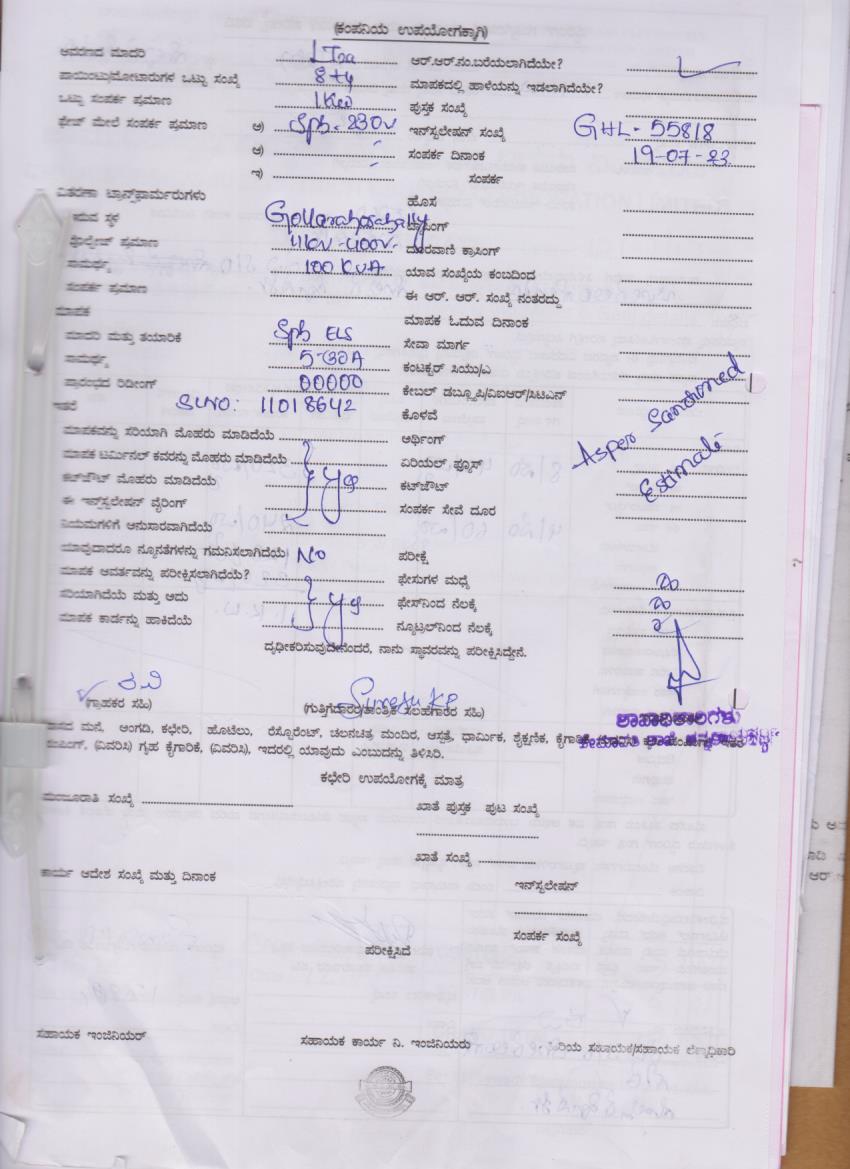 (ಕಂಪನಿಯ ಉಪಯೋಗಕ್ಕಾಗಿ)
ಆವರಣದ ಮಾದರಿ ಆರ್.ಆರ್.ನಂ.ಬರೆಯಲಾಗಿದೆಯೇ?
ಪಾಯಿಂಟು/ಮೋಟಾರುಗಳ ಒಟ್ಟು ಸಂಖ್ಯೆ 8+4 ಮಾಪಕದಲ್ಲಿ ಹಾಳೆಯನ್ನು ಇಡಲಾಗಿದೆಯೇ?
ಒಟ್ಟು ಸಂಪರ್ಕ ಪ್ರಮಾಣ 1Kw ಪುಸ್ತಕ ಸಂಖ್ಯೆ
ಫೇಜ್ ಮೇಲೆ ಸಂಪರ್ಕ ಪ್ರಮಾಣ ಅ) Sph - 230V ಇನ್‌ಸ್ಟಲೇಷನ್ ಸಂಖ್ಯೆ GHL - 55818
ಆ) ಸಂಪರ್ಕ ದಿನಾಂಕ 19-07-23
ಇ) ಸಂಪರ್ಕ
ವಿತರಣಾ ಟ್ರಾನ್ಸ್‌ಫಾರ್ಮರುಗಳು ಹೊಸ
ಇರುವ ಸ್ಥಳ Gollarahosahally ಕ್ರಾಸಿಂಗ್
ವೋಲ್ಟೇಜ್ ಪ್ರಮಾಣ 11kV-400V- ದೂರವಾಣಿ ಕ್ರಾಸಿಂಗ್
ಸಾಮರ್ಥ್ಯ 100 KVA ಯಾವ ಸಂಖ್ಯೆಯ ಕಂಬದಿಂದ
ಸಂಪರ್ಕ ಪ್ರಮಾಣ ಈ ಆರ್. ಆರ್. ಸಂಖ್ಯೆ ನಂತರದ್ದು
ಮಾಪಕ ಮಾಪಕ ಓದುವ ದಿನಾಂಕ
ಮಾದರಿ ಮತ್ತು ತಯಾರಿಕೆ Sph ELS ಸೇವಾ ಮಾರ್ಗ
ಸಾಮರ್ಥ್ಯ 5-30A ಕಂಟಕ್ಟರ್ ಸಿಯು/ಎ
ಪ್ರಾರಂಭದ ರಿಡೀಂಗ್ 00000 ಕೇಬಲ್ ಡಬ್ಲ್ಯೂಪಿ/ವಿಐಆರ್/ಸಿಟಿಎಸ್
ಇತರೆ Sl.NO: 11018642 ಕೊಳವೆ
ಮಾಪಕವನ್ನು ಸರಿಯಾಗಿ ಮೊಹರು ಮಾಡಿದೆಯೆ ಅರ್ಥಿಂಗ್ As per Sanctioned
ಮಾಪಕ ಟರ್ಮಿನಲ್ ಕವರನ್ನು ಮೊಹರು ಮಾಡಿದೆಯೆ ಏರಿಯಲ್ ಫ್ಯೂಸ್ Estimate
ಕಟ್‌ಔಟ್ ಮೊಹರು ಮಾಡಿದೆಯೆ yes ಕಟ್‌ಔಟ್
ಈ ಇನ್‌ಸ್ಟಲೇಷನ್ ವೈರಿಂಗ್ ಸಂಪರ್ಕ ಸೇವೆ ದೂರ
ನಿಯಮಗಳಿಗೆ ಅನುಸಾರವಾಗಿದೆಯೆ
ಯಾವುದಾದರೂ ನ್ಯೂನತೆಗಳನ್ನು ಗಮನಿಸಲಾಗಿದೆಯೆ No ಪರೀಕ್ಷೆ
ಮಾಪಕ ಆವರ್ತವನ್ನು ಪರೀಕ್ಷಿಸಲಾಗಿದೆಯೆ? ಫೇಸುಗಳ ಮಧ್ಯೆ
ಸರಿಯಾಗಿದೆಯೆ ಮತ್ತು ಅದು yes ಫೇಸ್‌ನಿಂದ ನೆಲಕ್ಕೆ
ಮಾಪಕ ಕಾರ್ಡನ್ನು ಹಾಕಿದೆಯೆ ನ್ಯೂಟ್ರಲ್‌ನಿಂದ ನೆಲಕ್ಕೆ
ದೃಢೀಕರಿಸುವುದೇನೆಂದರೆ, ನಾನು ಸ್ಥಾವರವನ್ನು ಪರೀಕ್ಷಿಸಿದ್ದೇನೆ.
ರವಿ Suresh KP
(ಗ್ರಾಹಕರ ಸಹಿ) (ಗುತ್ತಿಗೆದಾರರ/ತಾಂತ್ರಿಕ ಸಲಹಗಾರರ ಸಹಿ) ಶಾಖಾಧಿಕಾರಿಗಳು
ವಾಸದ ಮನೆ, ಅಂಗಡಿ, ಕಛೇರಿ, ಹೊಟೆಲು, ರೆಸ್ಟೋರೆಂಟ್, ಚಲನಚಿತ್ರ ಮಂದಿರ, ಆಸ್ಪತ್ರೆ, ಧಾರ್ಮಿಕ, ಶೈಕ್ಷಣಿಕ,
ಪಂಪಿಂಗ್, (ವಿವರಿಸಿ) ಗೃಹ ಕೈಗಾರಿಕೆ, (ವಿವರಿಸಿ), ಇದರಲ್ಲಿ ಯಾವುದು ಎಂಬುದನ್ನು ತಿಳಿಸಿರಿ.
ಕಛೇರಿ ಉಪಯೋಗಕ್ಕೆ ಮಾತ್ರ
ಮಂಜೂರಾತಿ ಸಂಖ್ಯೆ ಖಾತೆ ಪುಸ್ತಕ ಪುಟ ಸಂಖ್ಯೆ
ಖಾತೆ ಸಂಖ್ಯೆ
ಕಾರ್ಯ ಆದೇಶ ಸಂಖ್ಯೆ ಮತ್ತು ದಿನಾಂಕ ಇನ್‌ಸ್ಟಲೇಷನ್
ಸಂಪರ್ಕ ಸಂಖ್ಯೆ
ಪರೀಕ್ಷಿಸಿದೆ
ಸಹಾಯಕ ಇಂಜಿನಿಯರ್ ಸಹಾಯಕ ಕಾರ್ಯ ನಿ. ಇಂಜಿನಿಯರು ಹಿರಿಯ ಸಹಾಯಕ/ಸಹಾಯಕ ಲೆಕ್ಕಾಧಿಕಾರಿ